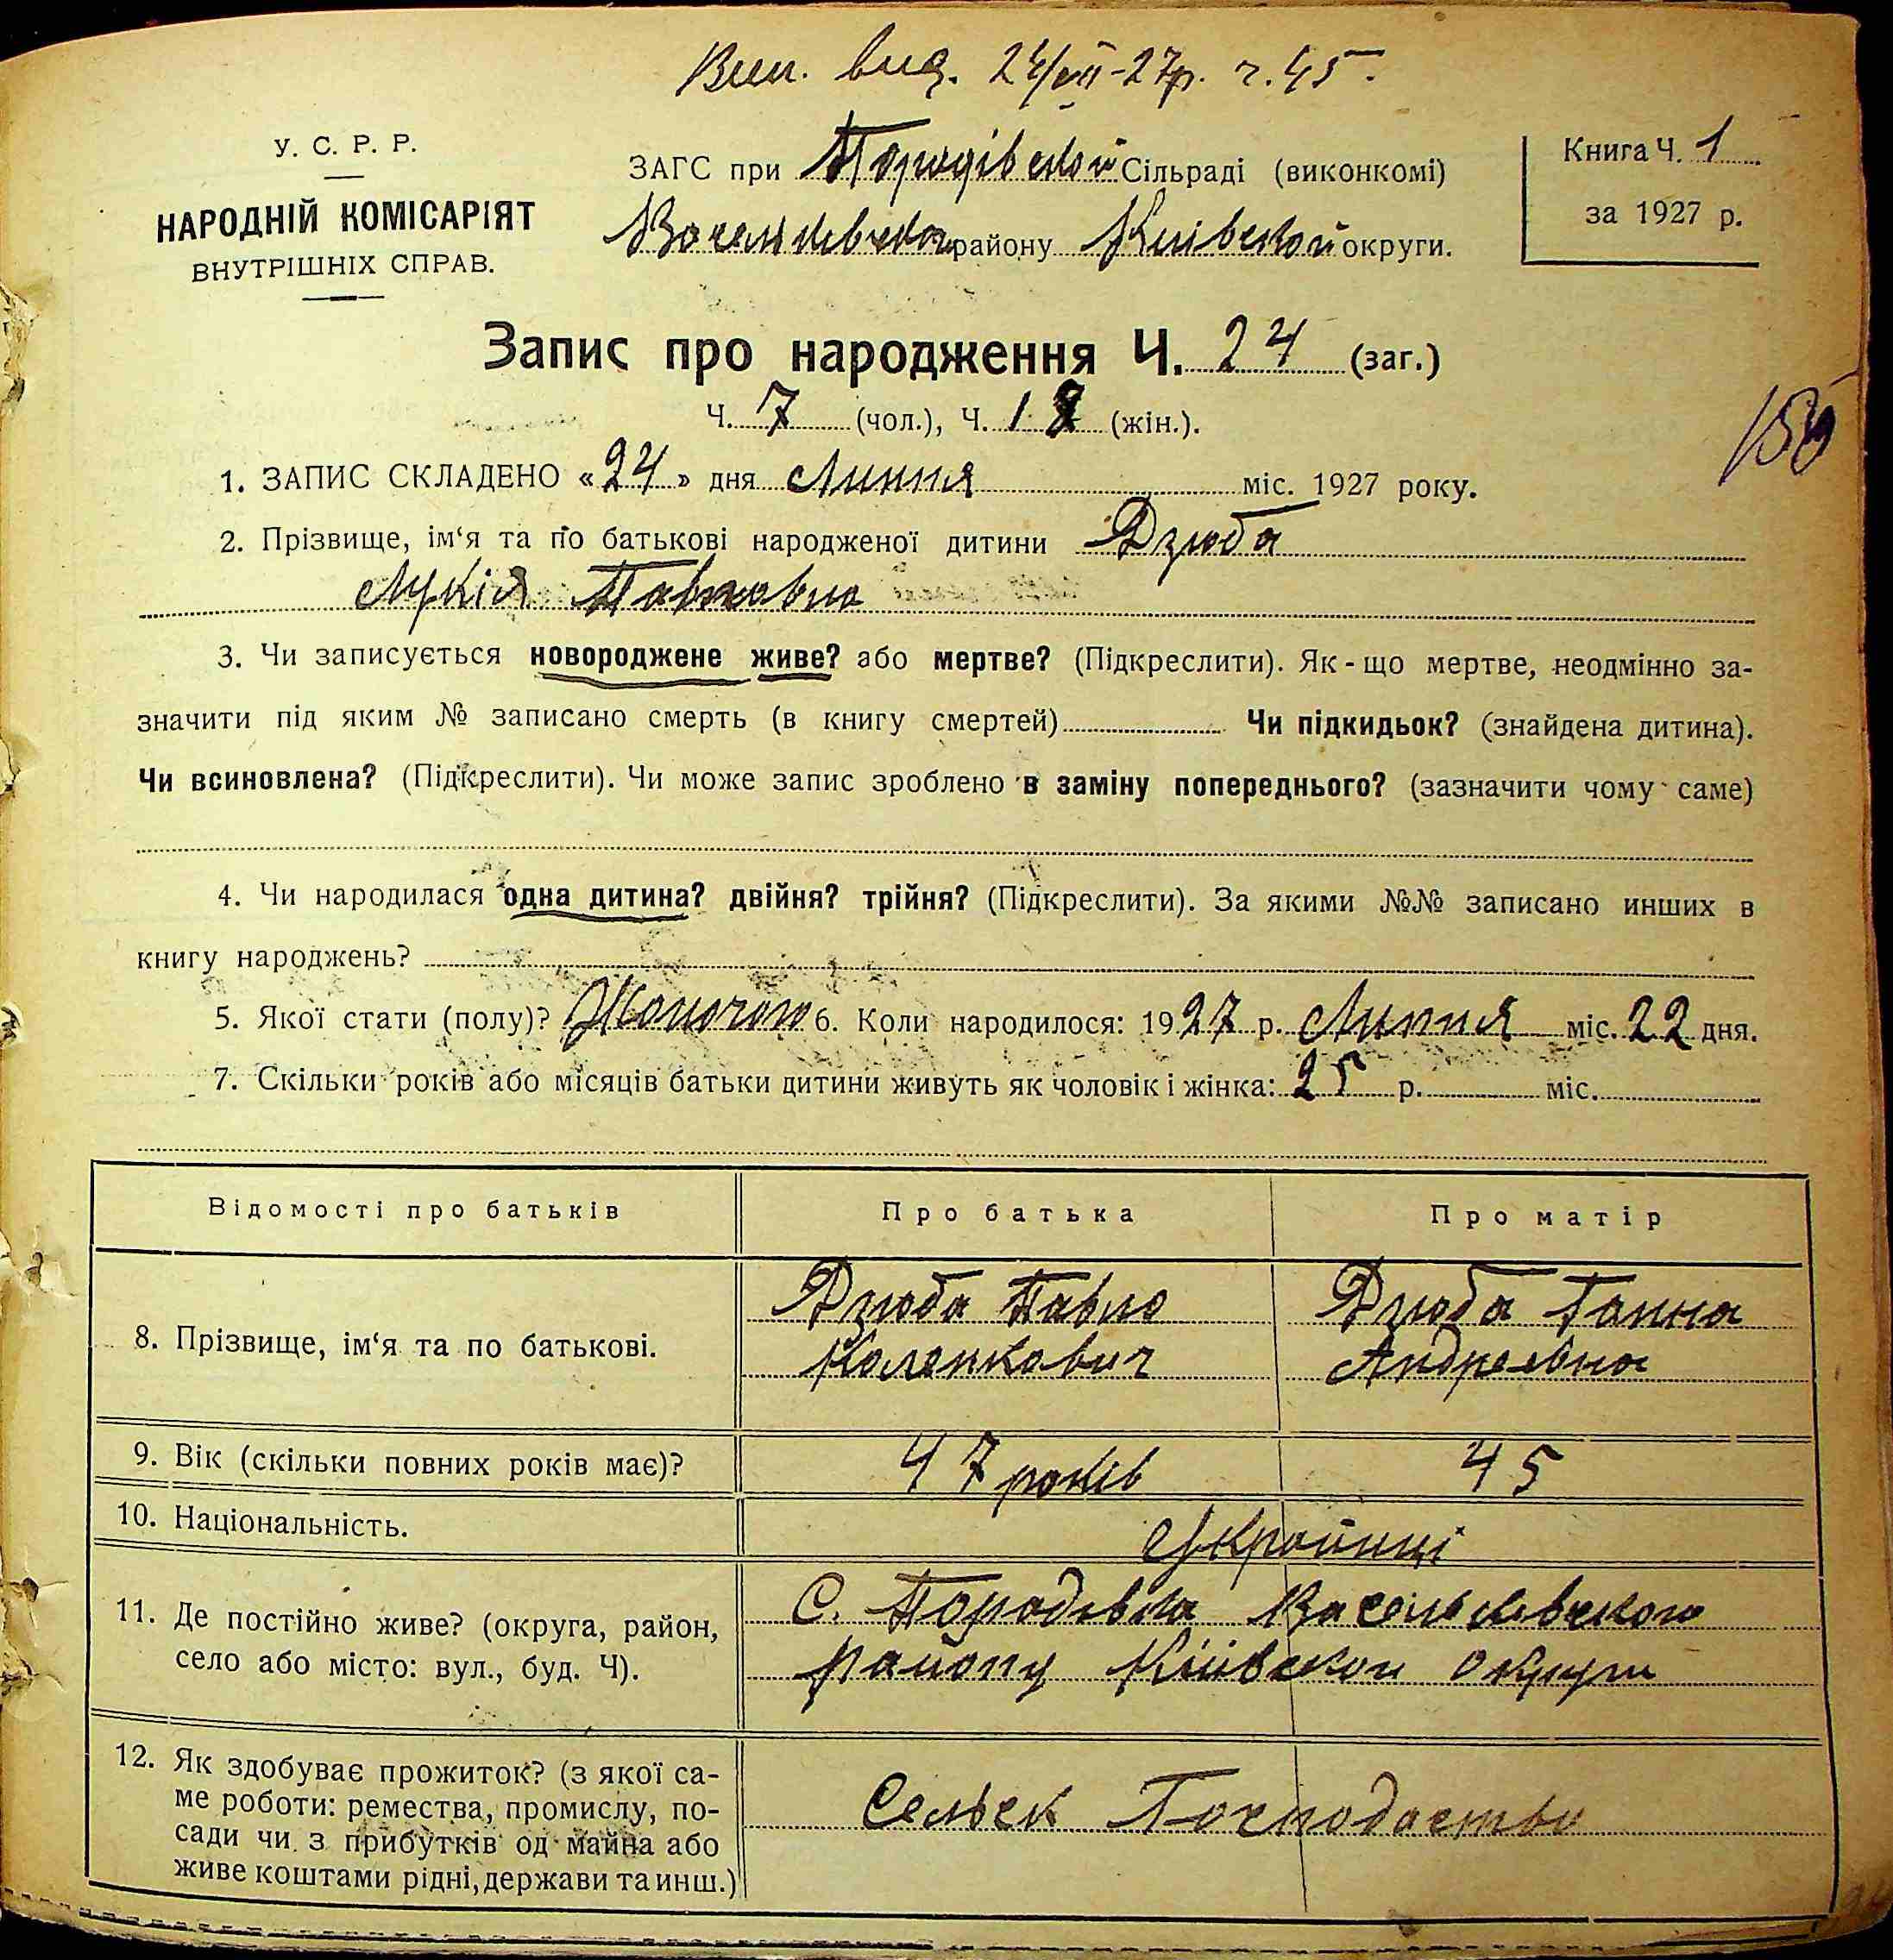 Вип. вид. 24/VII-27р. ч. 45.
У. С. Р. Р.
НАРОДНІЙ КОМІСАРІЯТ
ВНУТРІШНІХ СПРАВ.
ЗАГС при Порадівской Сільраді (виконкомі)
району Київской округи.
Книга Ч. 1
за 1927 р.
Запис про народження Ч. 24 (заг.)
Ч. 7 (чол.), Ч. 18 (жін.).
1. ЗАПИС СКЛАДЕНО «24» дня Липня міс. 1927 року.
2. Прізвище, ім‘я та по батькові народженої дитини Дзюба
Лукія Павловна
3. Чи записується новороджене живе? або мертве? (Підкреслити). Як-що мертве, неодмінно за-
значити під яким № записано смерть (в книгу смертей) Чи підкидьок? (знайдена дитина).
Чи всиновлена? (Підкреслити). Чи може запис зроблено в заміну попереднього? (зазначити чому саме)
4. Чи народилася одна дитина? двійня? трійня? (Підкреслити). За якими №№ записано инших в
книгу народжень?
5. Якої стати (полу)? Жоночого 6. Коли народилося: 1927 р. Липня міс. 22 дня.
7. Скільки років або місяців батьки дитини живуть як чоловік і жінка: 25 р. міс.
Відомості про батьків
Про батька
Про матір
8. Прізвище, ім‘я та по батькові.
Дзюба Павло
Дзюба Ганна
Андреевна
9. Вік (скільки повних років має)?
47 років
45
10. Національність.
Україйнці
11. Де постійно живе? (округа, район,
село або місто: вул., буд. Ч).
С. Порадовка
району Київскои округи
12. Як здобуває прожиток? (з якої са-
ме роботи: ремества, промислу, по-
сади чи з прибутків од майна або
живе коштами рідні, держави та инш.)
Сельск Господарство